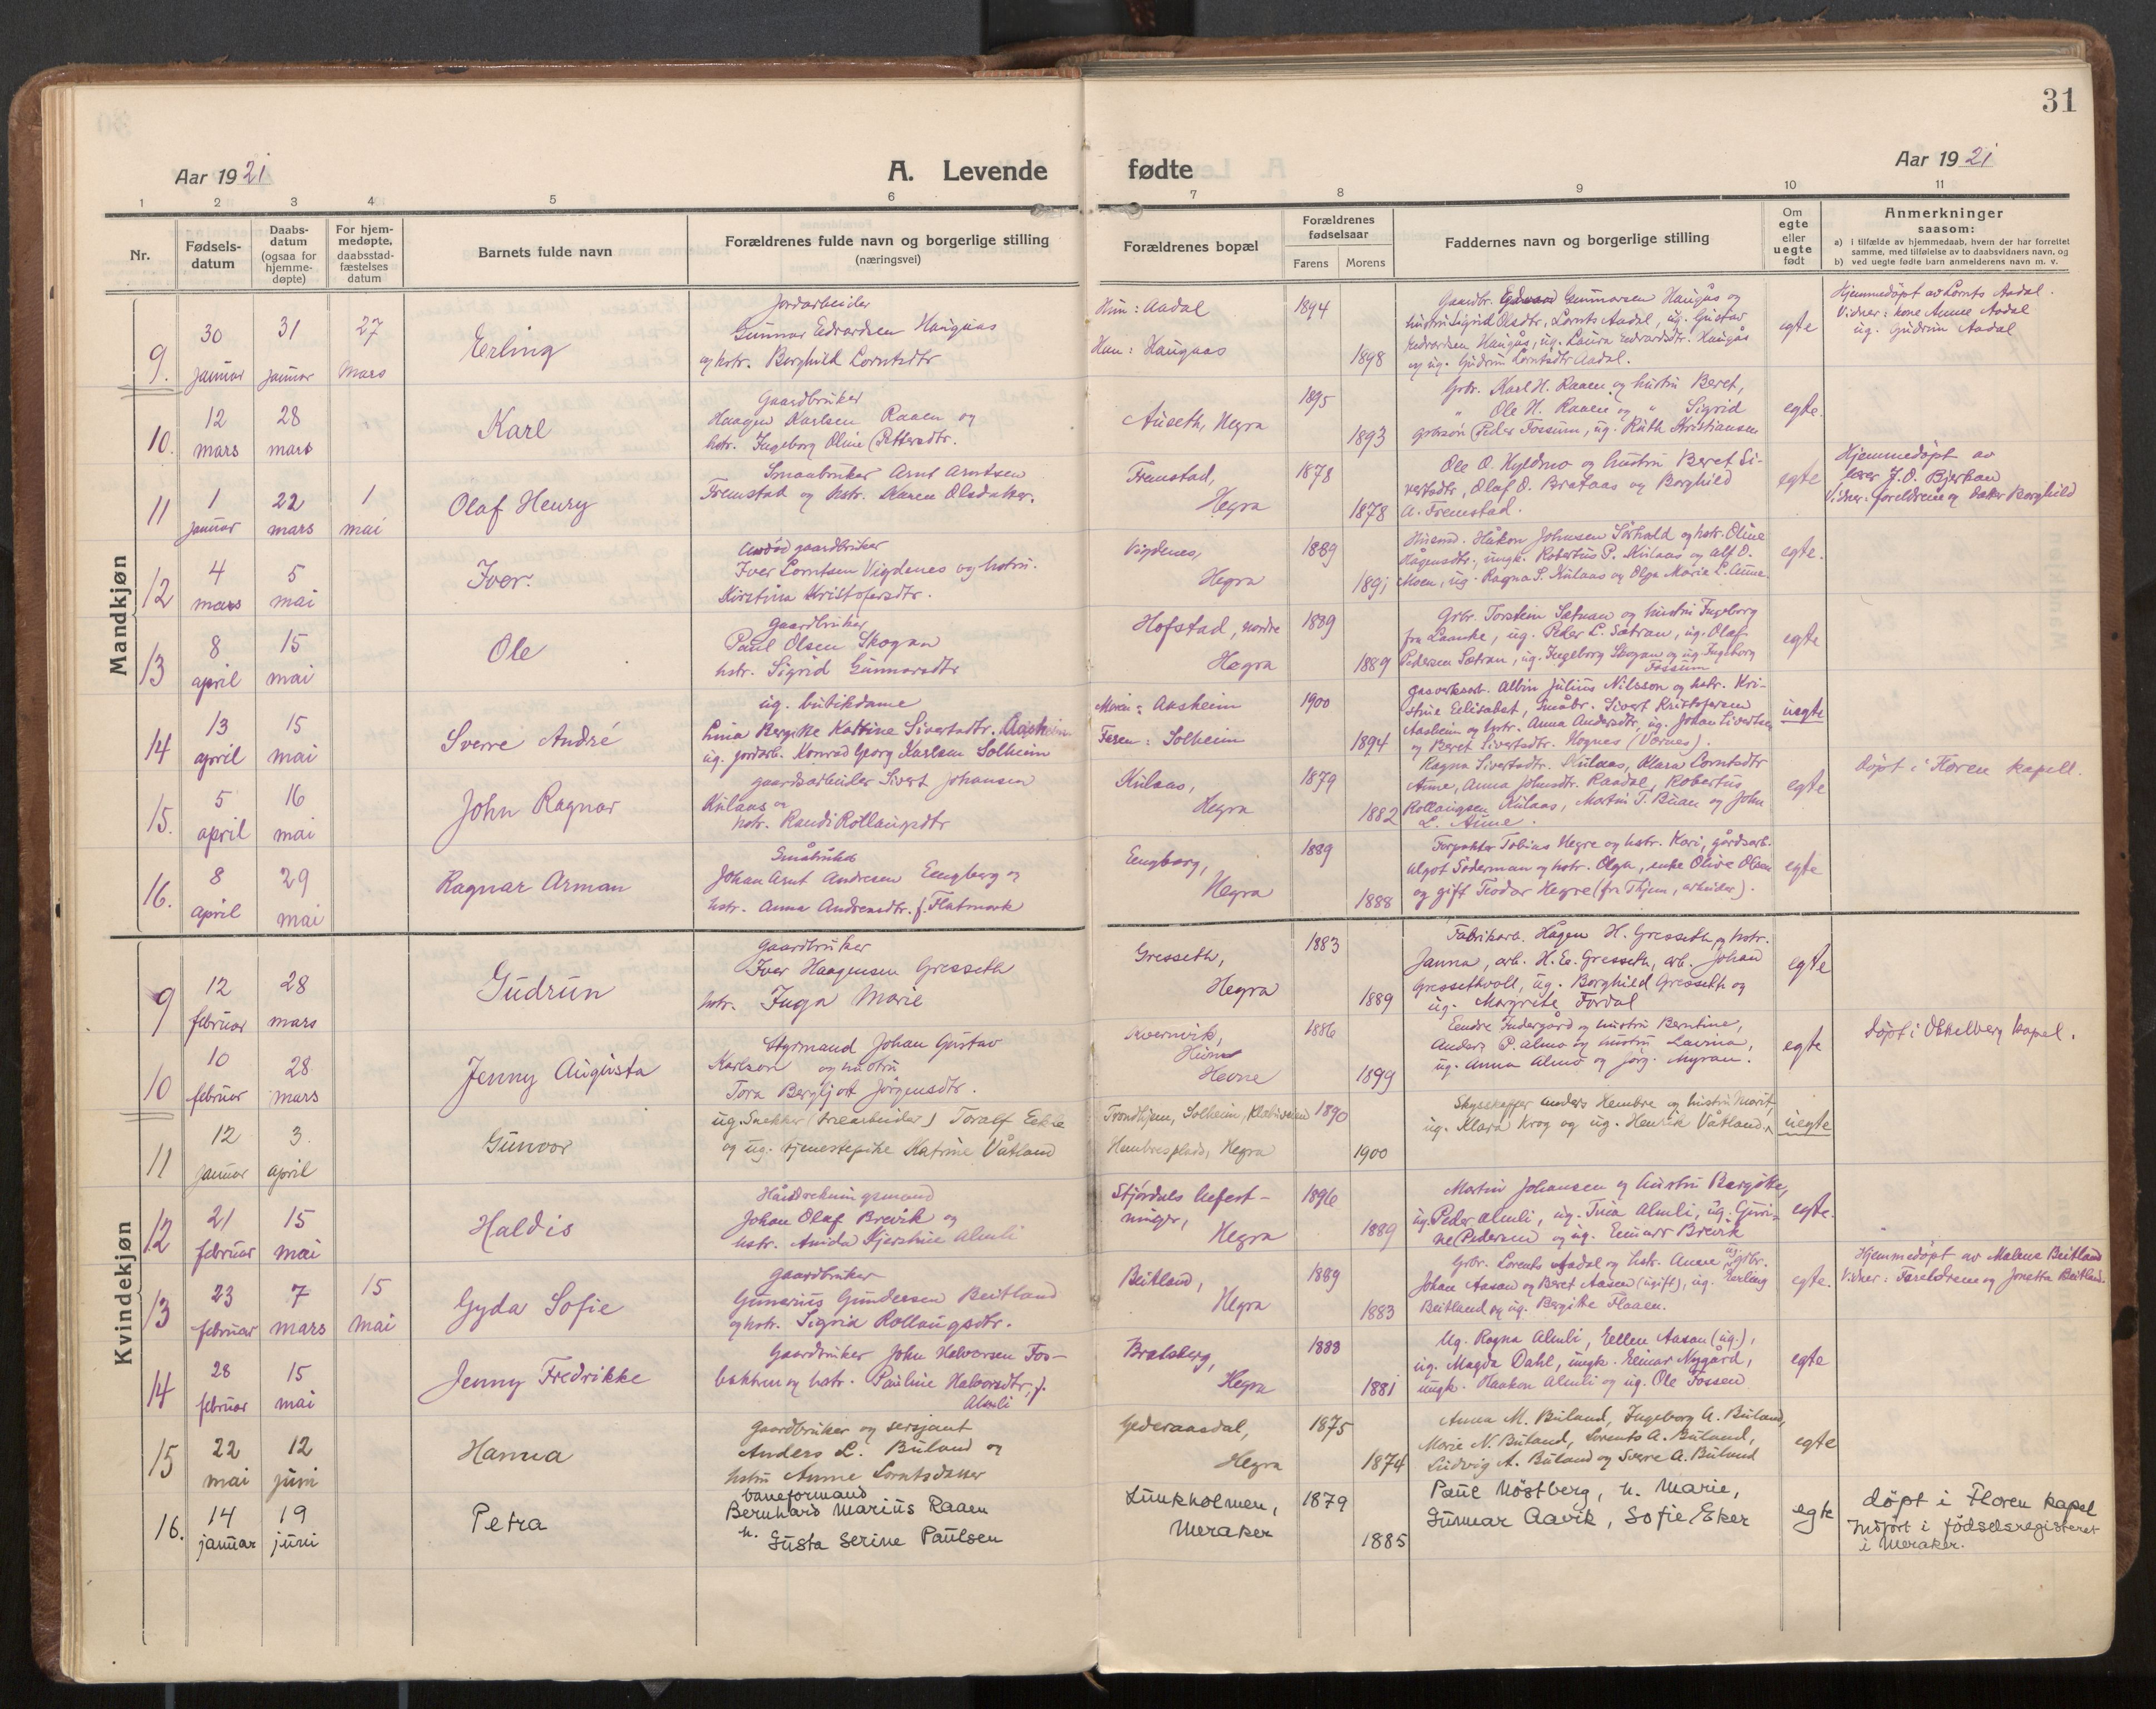 31
Aar 1921
A. Levende
fødte
Aar 1921
1 2 3 4 5 6 7 8 9 10 11
Nr.
Fødsels-
datum
Daabs-
datum
(ogsaa for
hjemme-
døpte)
For hjem-
medøpte,
daabsstad-
fæstelses
datum
Barnets fulde navn
Forældrenes fulde navn og borgerlige stilling
(næringsvei)
Forældrenes bopæl
Forældrenes
fødselsaar
Farens Morens
Faddernes navn og borgerlige stilling
Om
egte
eller
uegte
født
Anmerkninger
saasom:
a) i tilfælde av hjemmedaab, hvem der har forrettet
samme, med tilføielse av to daabsvidners navn, og
b) ved uegte fødte barn anmelderens navn m. v.
Mandkjøn
9. 30 januar
31 januar
27 mars
Erling
Jordarbeider
Gunnar Edvardsen Haugaas
og hstr. Borghild Lorntsdtr
Hun: Aadal
Han: Haugaas
1894
1898
Gaardbr. Edvard Gunnarsen Haugås og
hustru Sigrid Olsdtr, Lornts Aadal, ug. Gustav
Edvardsen Haugås, ug. Laura Edvardsdtr. Haugås
og ug. Gudrun Lorntsdtr Aadal.
egte
Hjemmedöpt av Lornts Aadal.
Vidner: kone Anne Aadal
ug. Gudrun Aadal
10. 12 mars
28 mars
Karl
Gaardbruker
Haagen Karlsen Raaen og
hstr. Ingeborg Oline Pettersdtr.
Auseth, Hegra
1895
1893
Grbr. Karl H. Raaen og hustru Beret,
" Ole H. Raaen og " Sigrid
grbrsön Peder Fossum, ug. Ruth Kristiansen
egte.
11 1 januar
22 mars
1 mai
Olaf Henry
Smaabruker Arnt Arntsen
Fremstad og hstr. Karen Olsdatter.
Fremstad,
Hegra
1878
1878
Ole O. Kyldmo og hustru Beret Si-
vertsdtr, Olaf O. Brataas og Borghild
A. Fremstad.
egte
Hjemmedöpt av
lærer J. O. Bjerkan
Vidner: foreldrene og datter Borghild
12 4 mars
5 mai
Iver.
gaardbruker
Iver Lorntsen Vigdenes og hstru.
Kirstina Kristofersdtr.
Vigdenes,
Hegra
1889
1891
Husmd. Håkon Johnsen Sörhald og hstr. Oline
Hågensdtr, ungk. Robertus P. Kulaas og Alf O.
Moen, ug. Ragna S. Kulaas og Olga Marie L. Aune.
egte.
13 8 april
15 mai
Ole
gaardbruker
Paul Olsen Skogan
hstr. Sigrid Gunnarsdtr
Hofstad, nordre
Hegra
1889
1889
Grbr. Torstein Sætran og hustru Ingeborg
fra Laanke, ug. Peder L. Sætran, ug. Olaf
Pedersen Sætran, ug. Ingeborg Skogan og ug. Ingeborg
Fossum
egte
14 13 april
15 mai
Sverre André
ug. butikdame
Lina Bergitte Katrine Sivertsdtr. Aasheim
ug. jordarb. Konrad Georg Karlsen Solheim
Moren: Aasheim
Faren: Solheim
1900
1894
gasverksarb. Albin Julius Nilsson og hstr. Kri-
stine Elisabet, småbr. Sivert Kristofersen
Aasheim og hstr. Anna Andersdtr, ug. Johan Sivertsen
og Beret Sivertsdtr. Hognes (Værnes).
uegte
15. 5 april
16 mai
John Ragnar
gaardsarbeider Sivert Johansen
Kulaas og
hstr. Randi Rollaugsdtr
Kulaas,
Hegra
1879
1882
Ragna Sivertsdtr. Kulaas, Klara Lorntsdtr
Aune, Anna Johnsdtr. Raadal, Robertus
Rollaugsen Kulaas, Martin T. Buan og John
L. Aune.
egte
Döpt i Floren kapell.
16. 8 april
29 mai
Ragnar Arman
Småbruker
Johan Arnt Andresen Engberg og
hstr. Anna Andreasdtr. f. Flatmark
Engberg,
Hegra
1889
1888
Forpakter Tobias Hegre og hstr. Kari, gårdsarb.
Algot Söderman og hstr. Olga, enke Olive Olsen
og gift Teodor Hegre (fra Thjem, arbeider).
egte
Kvindekjøn
9 12 februar
28 mars
Gudrun
Gaardbruker
Iver Haagensen Gresseth
hstr. Inga Marie
Gresseth,
Hegra
1883
1889
Fabrikarb. Hågen H. Gresseth og hstr.
Janna, arb. H. E. Gresseth, arb. Johan
Gressethvoll, ug. Borghild Gresseth og
ug. Margrite Fordal
egte
10 10 februar
28 mars
Jenny Augusta
Styrmand Johan Gustav
Karlson og hustru
Tora Bergljot Jörgensdtr.
Kvernvik,
Hevne
1886
1899
Endre Indergård og hustru Berntine,
Anders P. Almo og hustru Lavina,
ug. Anna Almo og Jörg. Myran.
egte
Döpt i Okkelberg kapel.
11 12 januar
3. april
Gunvor
ug. Snekker (træarbeider) Toralf Eckre
og ug. tjenestepike Katrine Våtland
Trondhjem, Solheim,
Hembresplads, Hegra
1890
1900
Skysskaffer Anders Hembre og hustru Marit,
ug. Klara Krog og ug. Henrik Våtland.
uegte
12 21 februar
15 mai
Haldis
Håndverkningsmand
Johan Olaf Brevik og
hstr. Anida Kjerstine Almli
Stjørdals befest-
ninger,
Hegra
1896
1889
Martin Johansen og hustru Bergitte,
ug. Peder Almli, ug. Tina Almli, ug. Guri-
ne Pedersen og ug. Einarr Brevik
egte.
13 23 februar
7 mars
15 mai
Gyda Sofie
Gaardbruker
Gunerius Gundersen Beitland
og hstr. Sigrid Rollaugsdtr.
Beitland,
Hegra
1889
1883
Grbr. Lorents Aadal og hstr. Anne, ug. grbr.
Johan Aasan og Beret Aasen (ugift), ug. Erling
Beitland og ug. Bergitte Flaaen.
egte.
Hjemmedöpt av Malena Beitland
Vidner: Foreldrene og Jonetta Beitland.
14 28 februar
15 mai
Jenny Fredrikke
Gaardbruker John Halvorsen Fos-
bakken og hstr. Pauline Halvorsdtr, f.
Almli
Bratsberg,
Hegra
1888
1881
Ug. Ragna Almli, Ellen Aasan (ug.),
ug. Magda Dahl, ungk. Einar Nygård,
ungk. Haakon Almli og ug. Ole Fossen
egte
15 22 mai
12 juni
Hanna
gaardbruker og sersjant
Anders L. Buland og
hstru Anne Lorntsdatter
Gederaasdal,
Hegra
1875
1874
Anna M. Buland, Ingeborg A. Buland,
Marie N. Buland, Lorents A. Buland,
Ludvig A. Buland og Sverre A. Buland
egte
16. 14 januar
19 juni
Petra
baneformand
Bernhard Marius Raaen
h. Gusta Serine Paulsen
Lunkholmen,
Meraker
1879
1885
Paul Nöstberg, h. Marie,
Gunnar Aavik, Sofie Eker
egte
döpt i Floren kapel
Indfört i födselsregisteret
i Meraker.